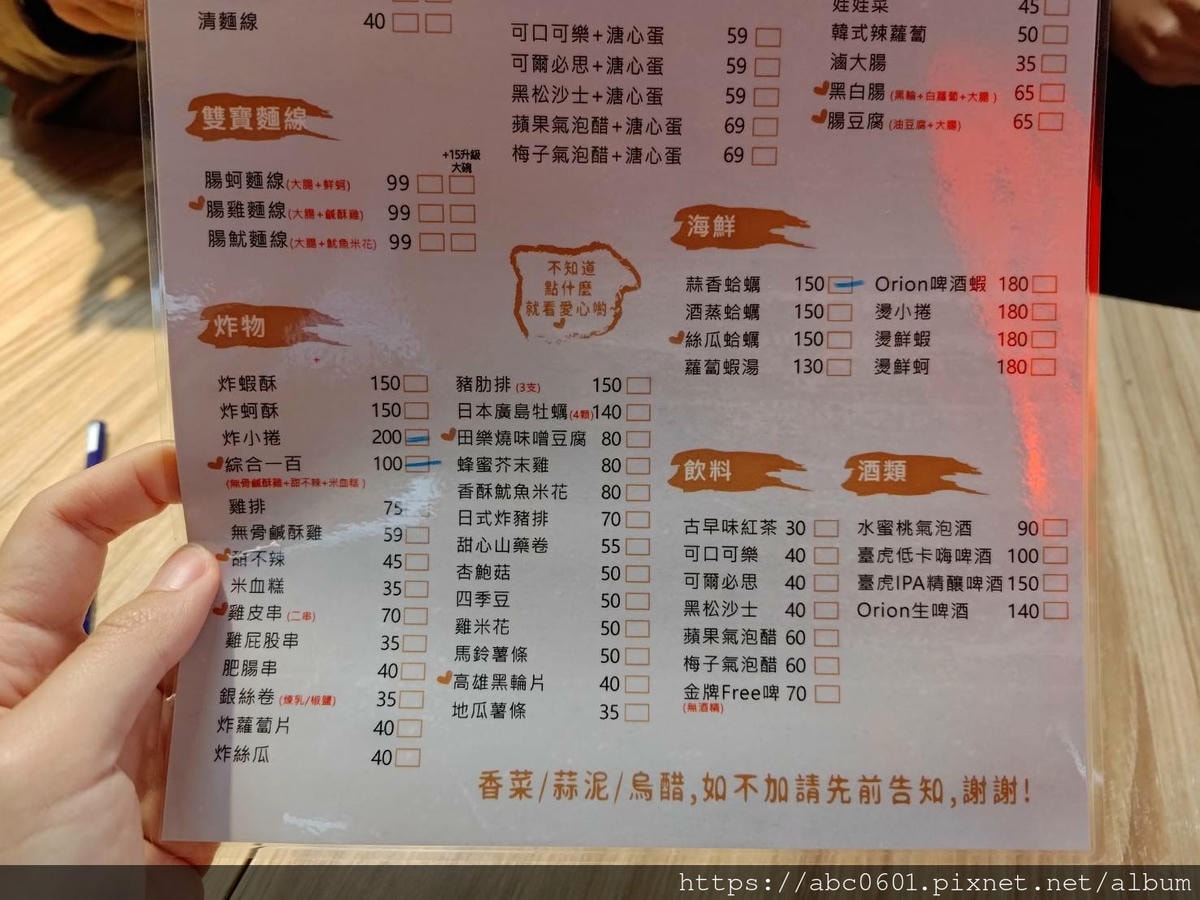 清麵線 40
雙寶麵線
+15升級
大碗
腸蚵麵線(大腸+鮮蚵) 99
腸雞麵線(大腸+鹹酥雞) 99
腸魷麵線(大腸+魷魚米花) 99
可口可樂+溏心蛋 59
可爾必思+溏心蛋 59
黑松沙士+溏心蛋 59
蘋果氣泡醋+溏心蛋 69
梅子氣泡醋+溏心蛋 69
娃娃菜 45
韓式辣蘿蔔 50
滷大腸 35
黑白腸(黑輪+白蘿蔔+大腸) 65
腸豆腐(油豆腐+大腸) 65
不知道
點什麼
就看愛心喲~
海鮮
蒜香蛤蠣 150
酒蒸蛤蠣 150
絲瓜蛤蠣 150
蘿蔔蝦湯 130
Orion啤酒蝦 180
燙小捲 180
燙鮮蝦 180
燙鮮蚵 180
炸物
炸蝦酥 150
炸蚵酥 150
炸小捲 200
綜合一百 100
(無骨鹹酥雞+甜不辣+米血糕)
雞排 75
無骨鹹酥雞 59
甜不辣 45
米血糕 35
雞皮串(二串) 70
雞屁股串 35
肥腸串 40
銀絲卷(煉乳/椒鹽) 35
炸蘿蔔片 40
炸絲瓜 40
豬肋排(3支) 150
日本廣島牡蠣(4顆)140
田樂燒味噌豆腐 80
蜂蜜芥末雞 80
香酥魷魚米花 80
日式炸豬排 70
甜心山藥卷 55
杏鮑菇 50
四季豆 50
雞米花 50
馬鈴薯條 50
高雄黑輪片 40
地瓜薯條 35
飲料
古早味紅茶 30
可口可樂 40
可爾必思 40
黑松沙士 40
蘋果氣泡醋 60
梅子氣泡醋 60
金牌Free啤 70
(無酒精)
酒類
水蜜桃氣泡酒 90
臺虎低卡嗨啤酒 100
臺虎IPA精釀啤酒 150
Orion生啤酒 140
香菜/蒜泥/烏醋,如不加請先前告知,謝謝!
https://abc0601.pixnet.net/album